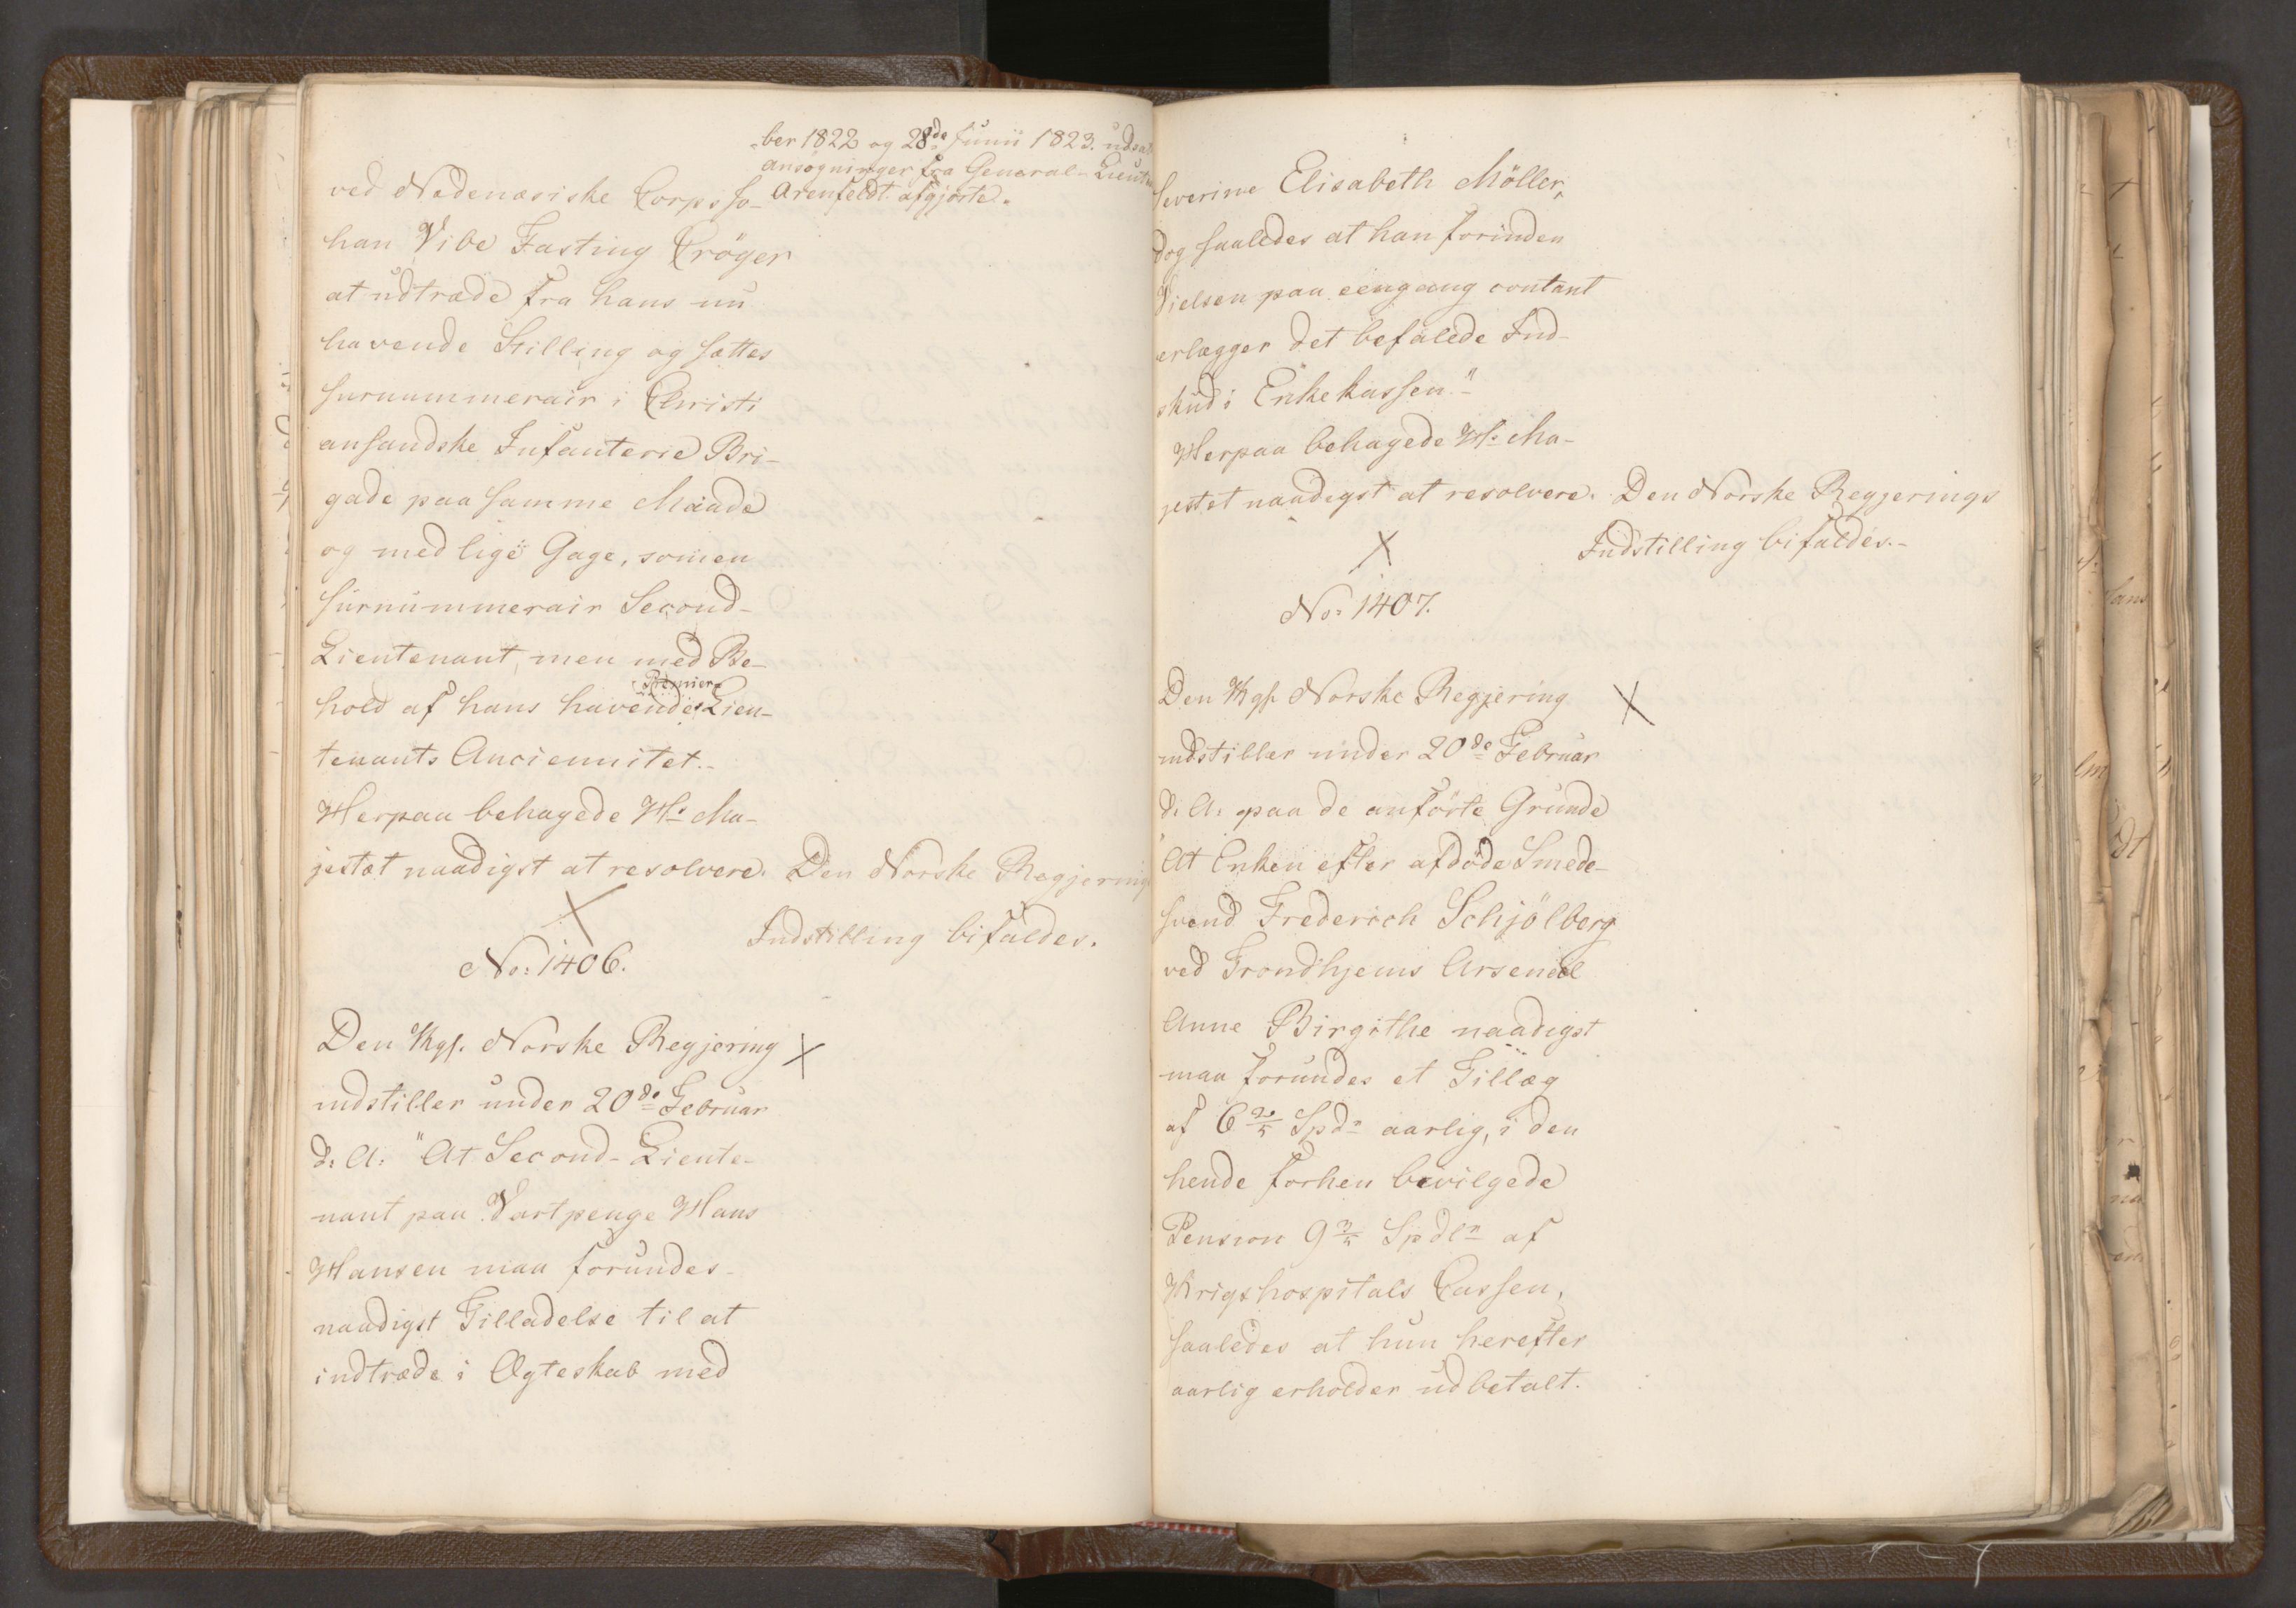 -ber 1822 og 28de Junii 1823. udsat
ansøgninger fra General-Lieut
Arenfeldt afgjørte.
ved Nedenæsiske Corps Jo-
han Vibe Fasting Crøger
at udtræde fra hans nu
havende Stilling og sættes
surnummerair i Christi
ansandske Infanterie Bri-
gade paa samme Maade
og med lige Gage, som en
surnummerair Second-
Lieutenant, men med Be-
hold af hans havende Premier-Lieu-
tenants Anciennitet.-
Herpaa behagede Hs Ma-
jestæt naadigst at resolvere. Den Norske Regjerings
Indstilling bifaldes.
No: 1406.
Den Kgs. Norske Regjering
indstiller under 20de Februar
d: A: "At Second-Lieute-
nant paa Vartpenge Hans
Hansen maa forundes
naadigst Tilladelse til at
indtræde i Ægteskab med
Severine Elisabeth Möller,
dog saaledes at han forinden
Vielsen paa eengang contant
erlægger det befalede Ind-
skud i Enkekassen."
Herpaa behagede Hs Ma-
jestæt naadigst at resolvere. Den Norske Regjerings
Indstilling bifaldes.-
No: 1407.
Den Kgs. Norske Regjering
indstiller under 20de Februar
d: A: paa de anførte Grunde
"At Enken efter afdøde Smede-
svend Frederich Schjölberg
ved Trondhjems Arsenal
Anne Birgithe naadigst
maa forundes et Tillæg
af 6 2/5 Spdr aarlig, i den
hende forhen bevilgede
Pension 9 3/5 Spdlr af
Krigshospitals Cassen,
saaledes at hun herefter
aarlig erholder udbetalt.